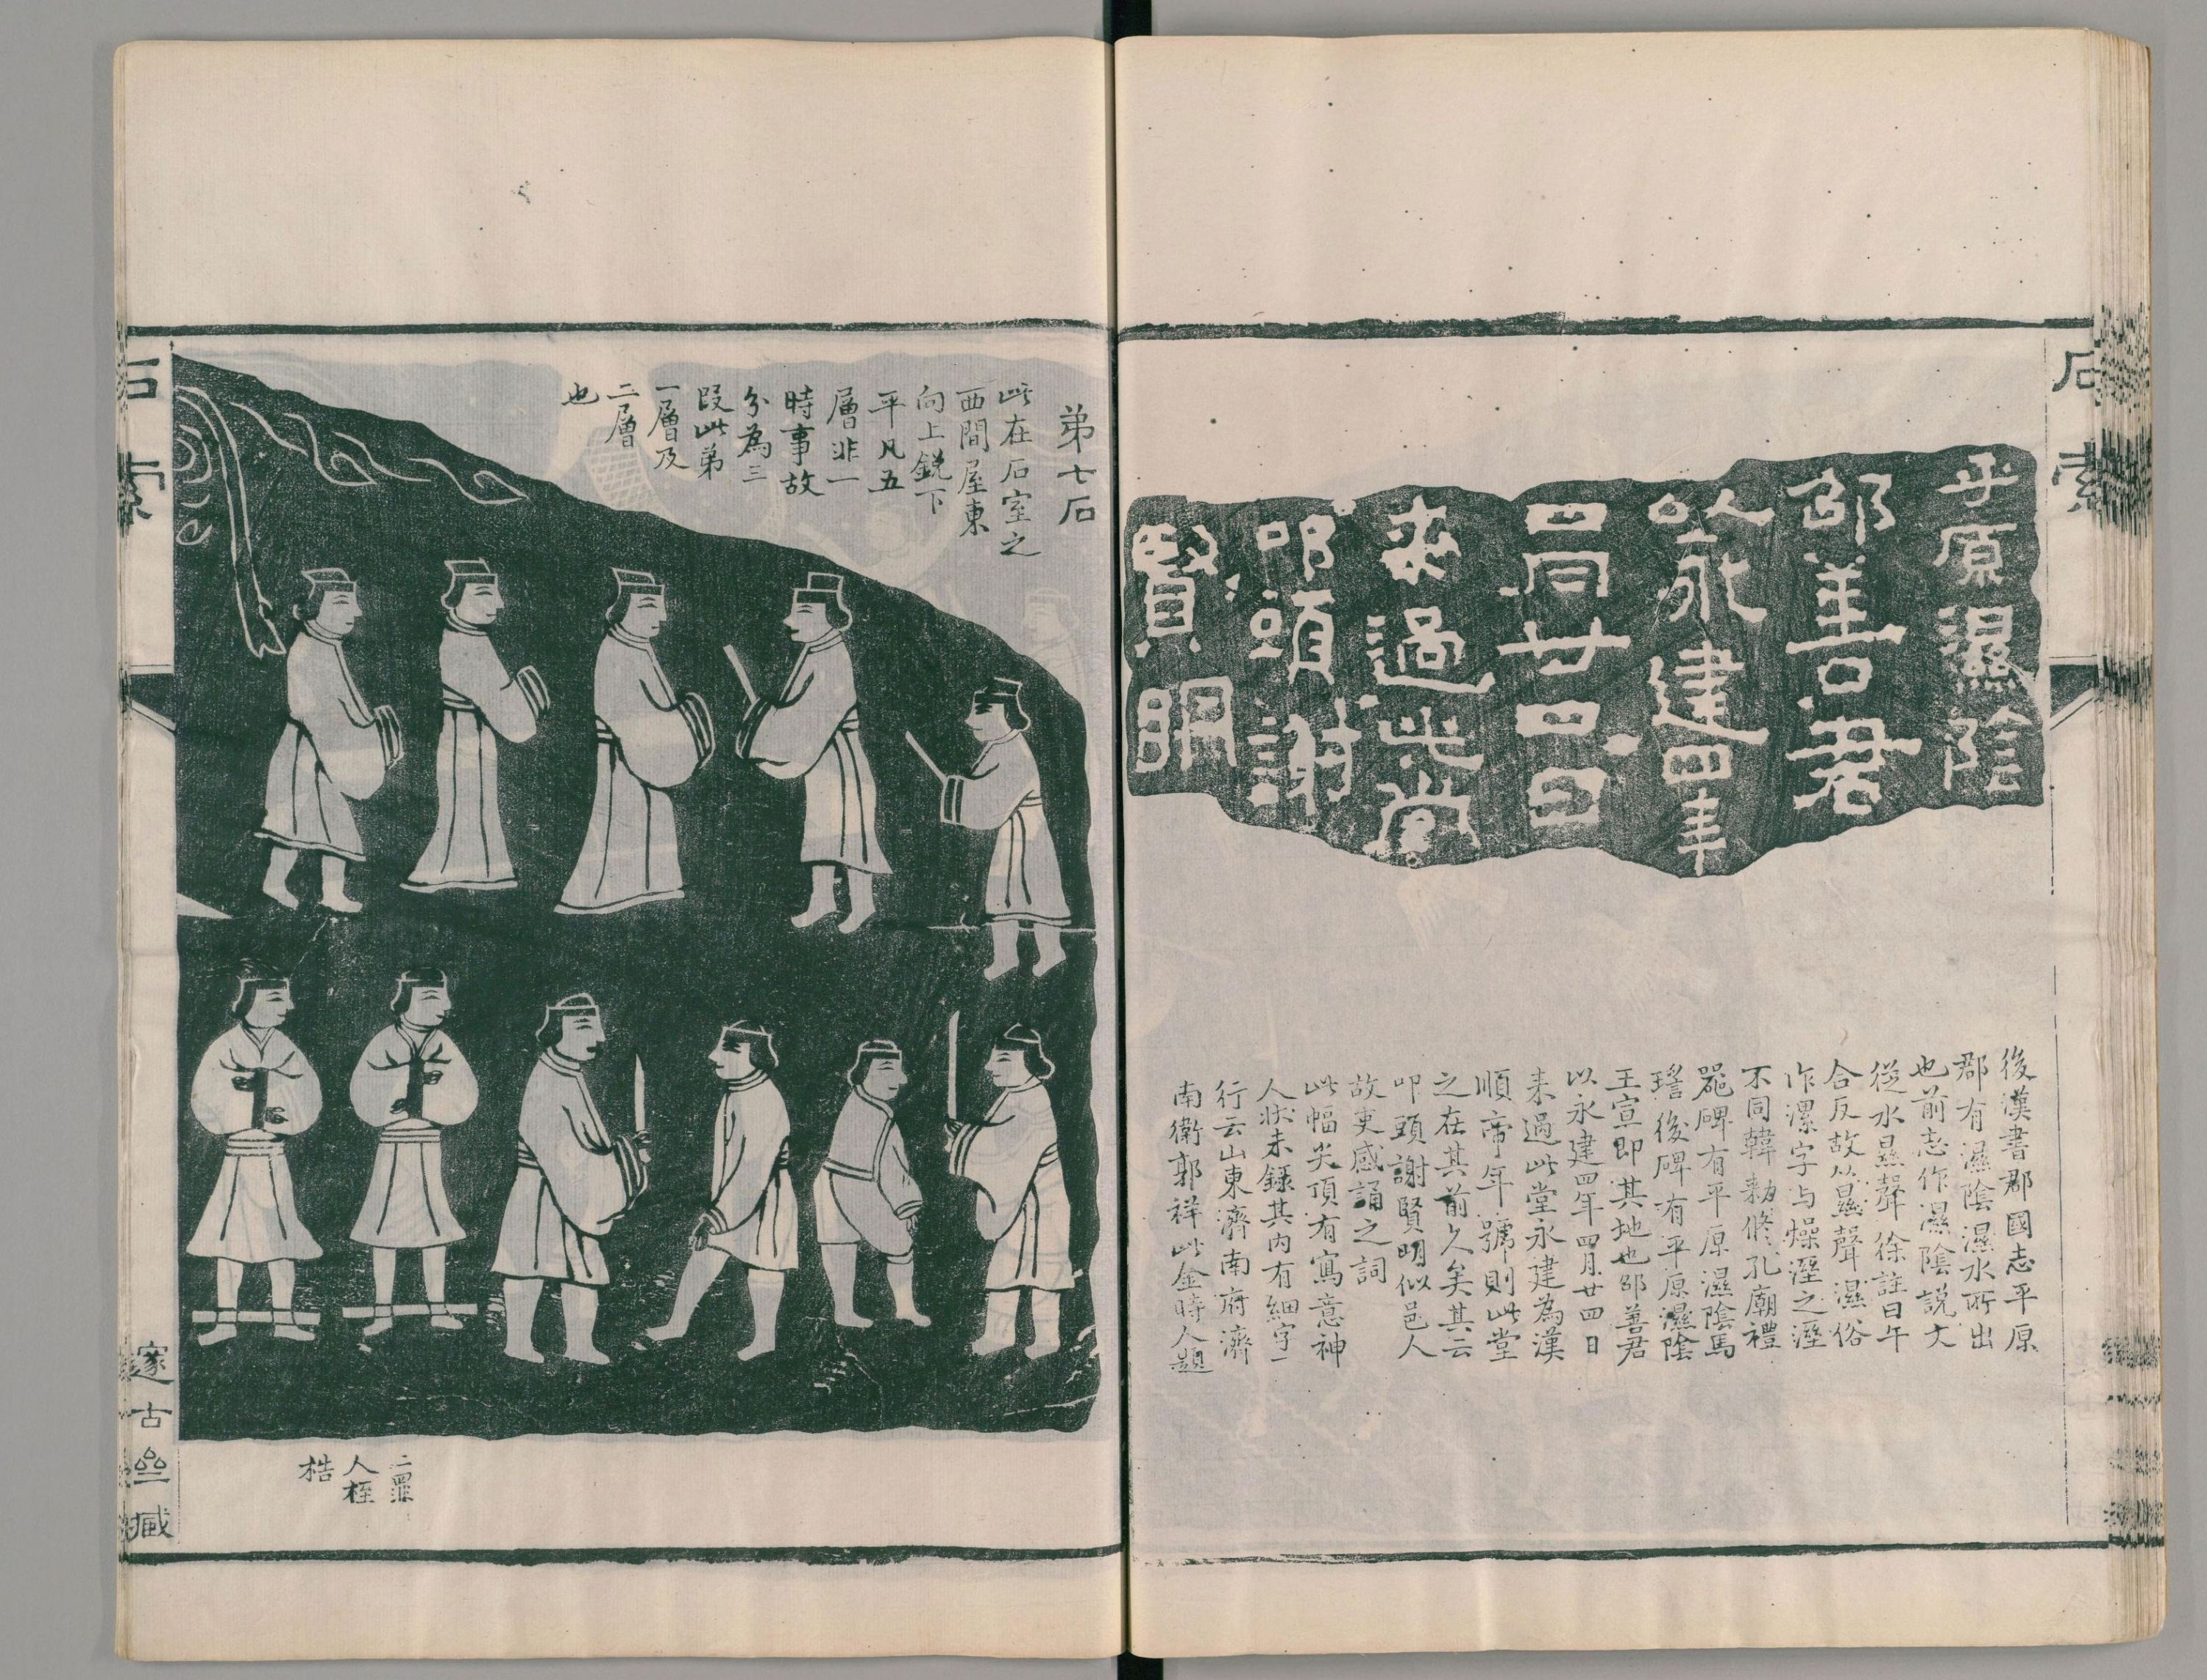 石索
平原濕陰
邵善君
以永建四年
四月廿四日
来過此堂
叩頭謝
賢明
後漢書郡國志平原
郡有濕陰濕水所出
也前志作濕陰說文
從水㬎聲徐註曰午
合反故从㬎聲濕俗
作漯字与燥溼之溼
不同韓勑修孔廟禮
器碑有平原濕陰馬
瑤後碑有平原濕陰
王宣即其地也邵善君
以永建四年四月廿四日
来過此堂永建為漢
順帝年號則此堂
之在其前久矣其云
叩頭謝賢明似邑人
故吏感誦之詞
此幅尖頂有寫意神
人狀未錄其內有細字一
行云山東濟南府濟
南衛郭祥此金時人題
弟七石
此在石室之
西間屋東
向上銳下
平凡五
層非一
時事故
分為三
段此弟
一層及
二層
也
二罪
人桎
梏
石索
邃古𠫭臧